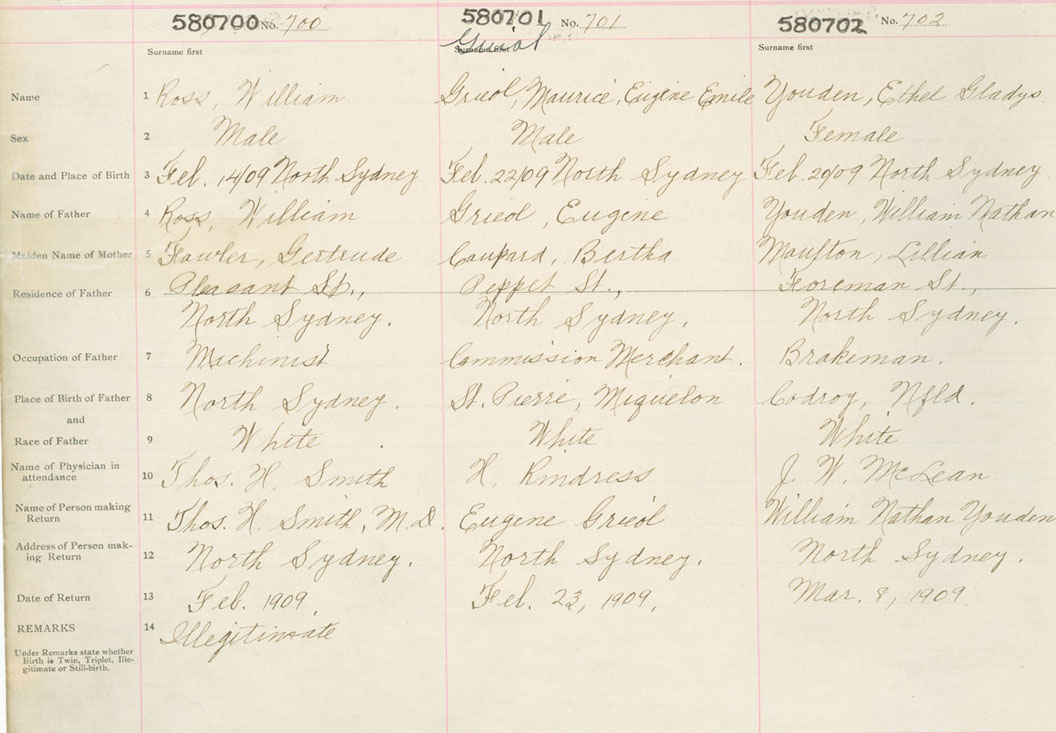 580700 No. 700 580701 No. 701 580702 No. 702
Surname first Surname first Surname first
Name 1 Ross, William Griol, Maurice, Eugene Emile Youden, Ethel Gladys.
Sex 2 Male Male Female
Date and Place of Birth 3 Feb. 14/09 North Sydney Feb. 22/09 North Sydney Feb. 20/09 North Sydney
Name of Father 4 Ross, William Grieol, Eugene Youden, William Nathan
Maiden Name of Mother 5 Fowler, Gertrude Coupard, Bertha Moulton, Lillian
Residence of Father 6 Pleasant St., Peppit St., Foreman St.,
North Sydney. North Sydney. North Sydney.
Occupation of Father 7 Machinist Commission Merchant. Brakeman.
Place of Birth of Father 8 North Sydney. St. Pierre, Miquelon Codroy, Nfld.
and
Race of Father 9 White White White
Name of Physician in
attendance 10 Thos. H. Smith H. Rindress J. W. McLean
Name of Person making
Return 11 Thos. H. Smith, M.D. Eugene Grieol William Nathan Youden
Address of Person mak-
ing Return 12 North Sydney. North Sydney. North Sydney.
Date of Return 13 Feb. 1909. Feb. 23, 1909. Mar. 8, 1909.
REMARKS 14 Illegitimate
Under Remarks state whether
Birth is Twin, Triplet, Ille-
gitimate or Still-birth.